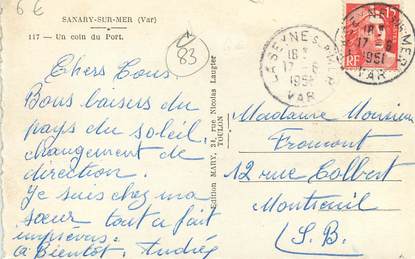 6 €
SANARY-SUR-MER (Var)
117 — Un coin du Port.
83
Chers Tous.
Bons baisers du
pays du soleil.
changement de
direction.
je suis chez ma
sœur tout a fait
imprévus.
a Bientôt. Andrée
Edition MARY, 34, rue Nicolas Laugier
TOULON
LA SEYNE S-MER
18H
17-6
1951
VAR
LA SEYNE-S-MER
18H
17-6
1951
VAR
RF
Madame Monsieur
Fromont
12 rue Colbert
Montreuil
(S.B.